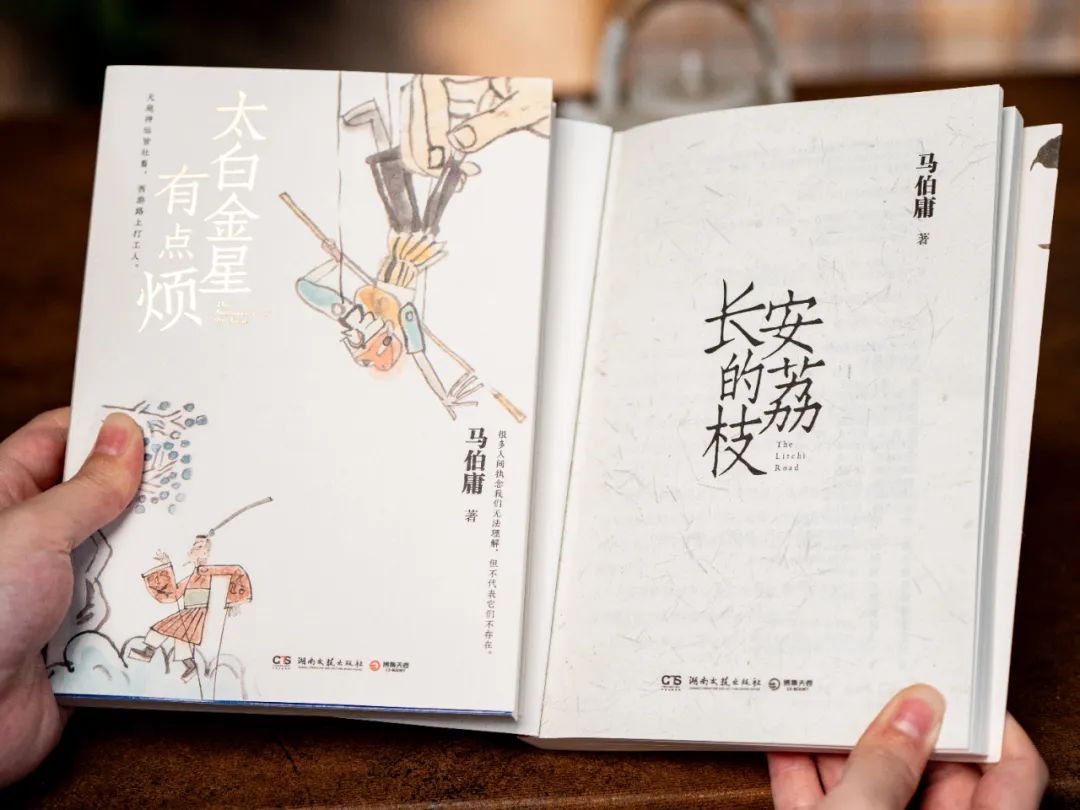 太白金星
有点烦
天庭神仙皆社畜，西游路上打工人。
马伯庸
著
很多人间执念我们无法理解，但不代表它们不存在。
CTS
湖南文艺出版社
博集天卷
CS-BOOKY
马伯庸
著
长安
的荔
枝
The
Litchi
Road
CTS
湖南文艺出版社
博集天卷
CS-BOOKY